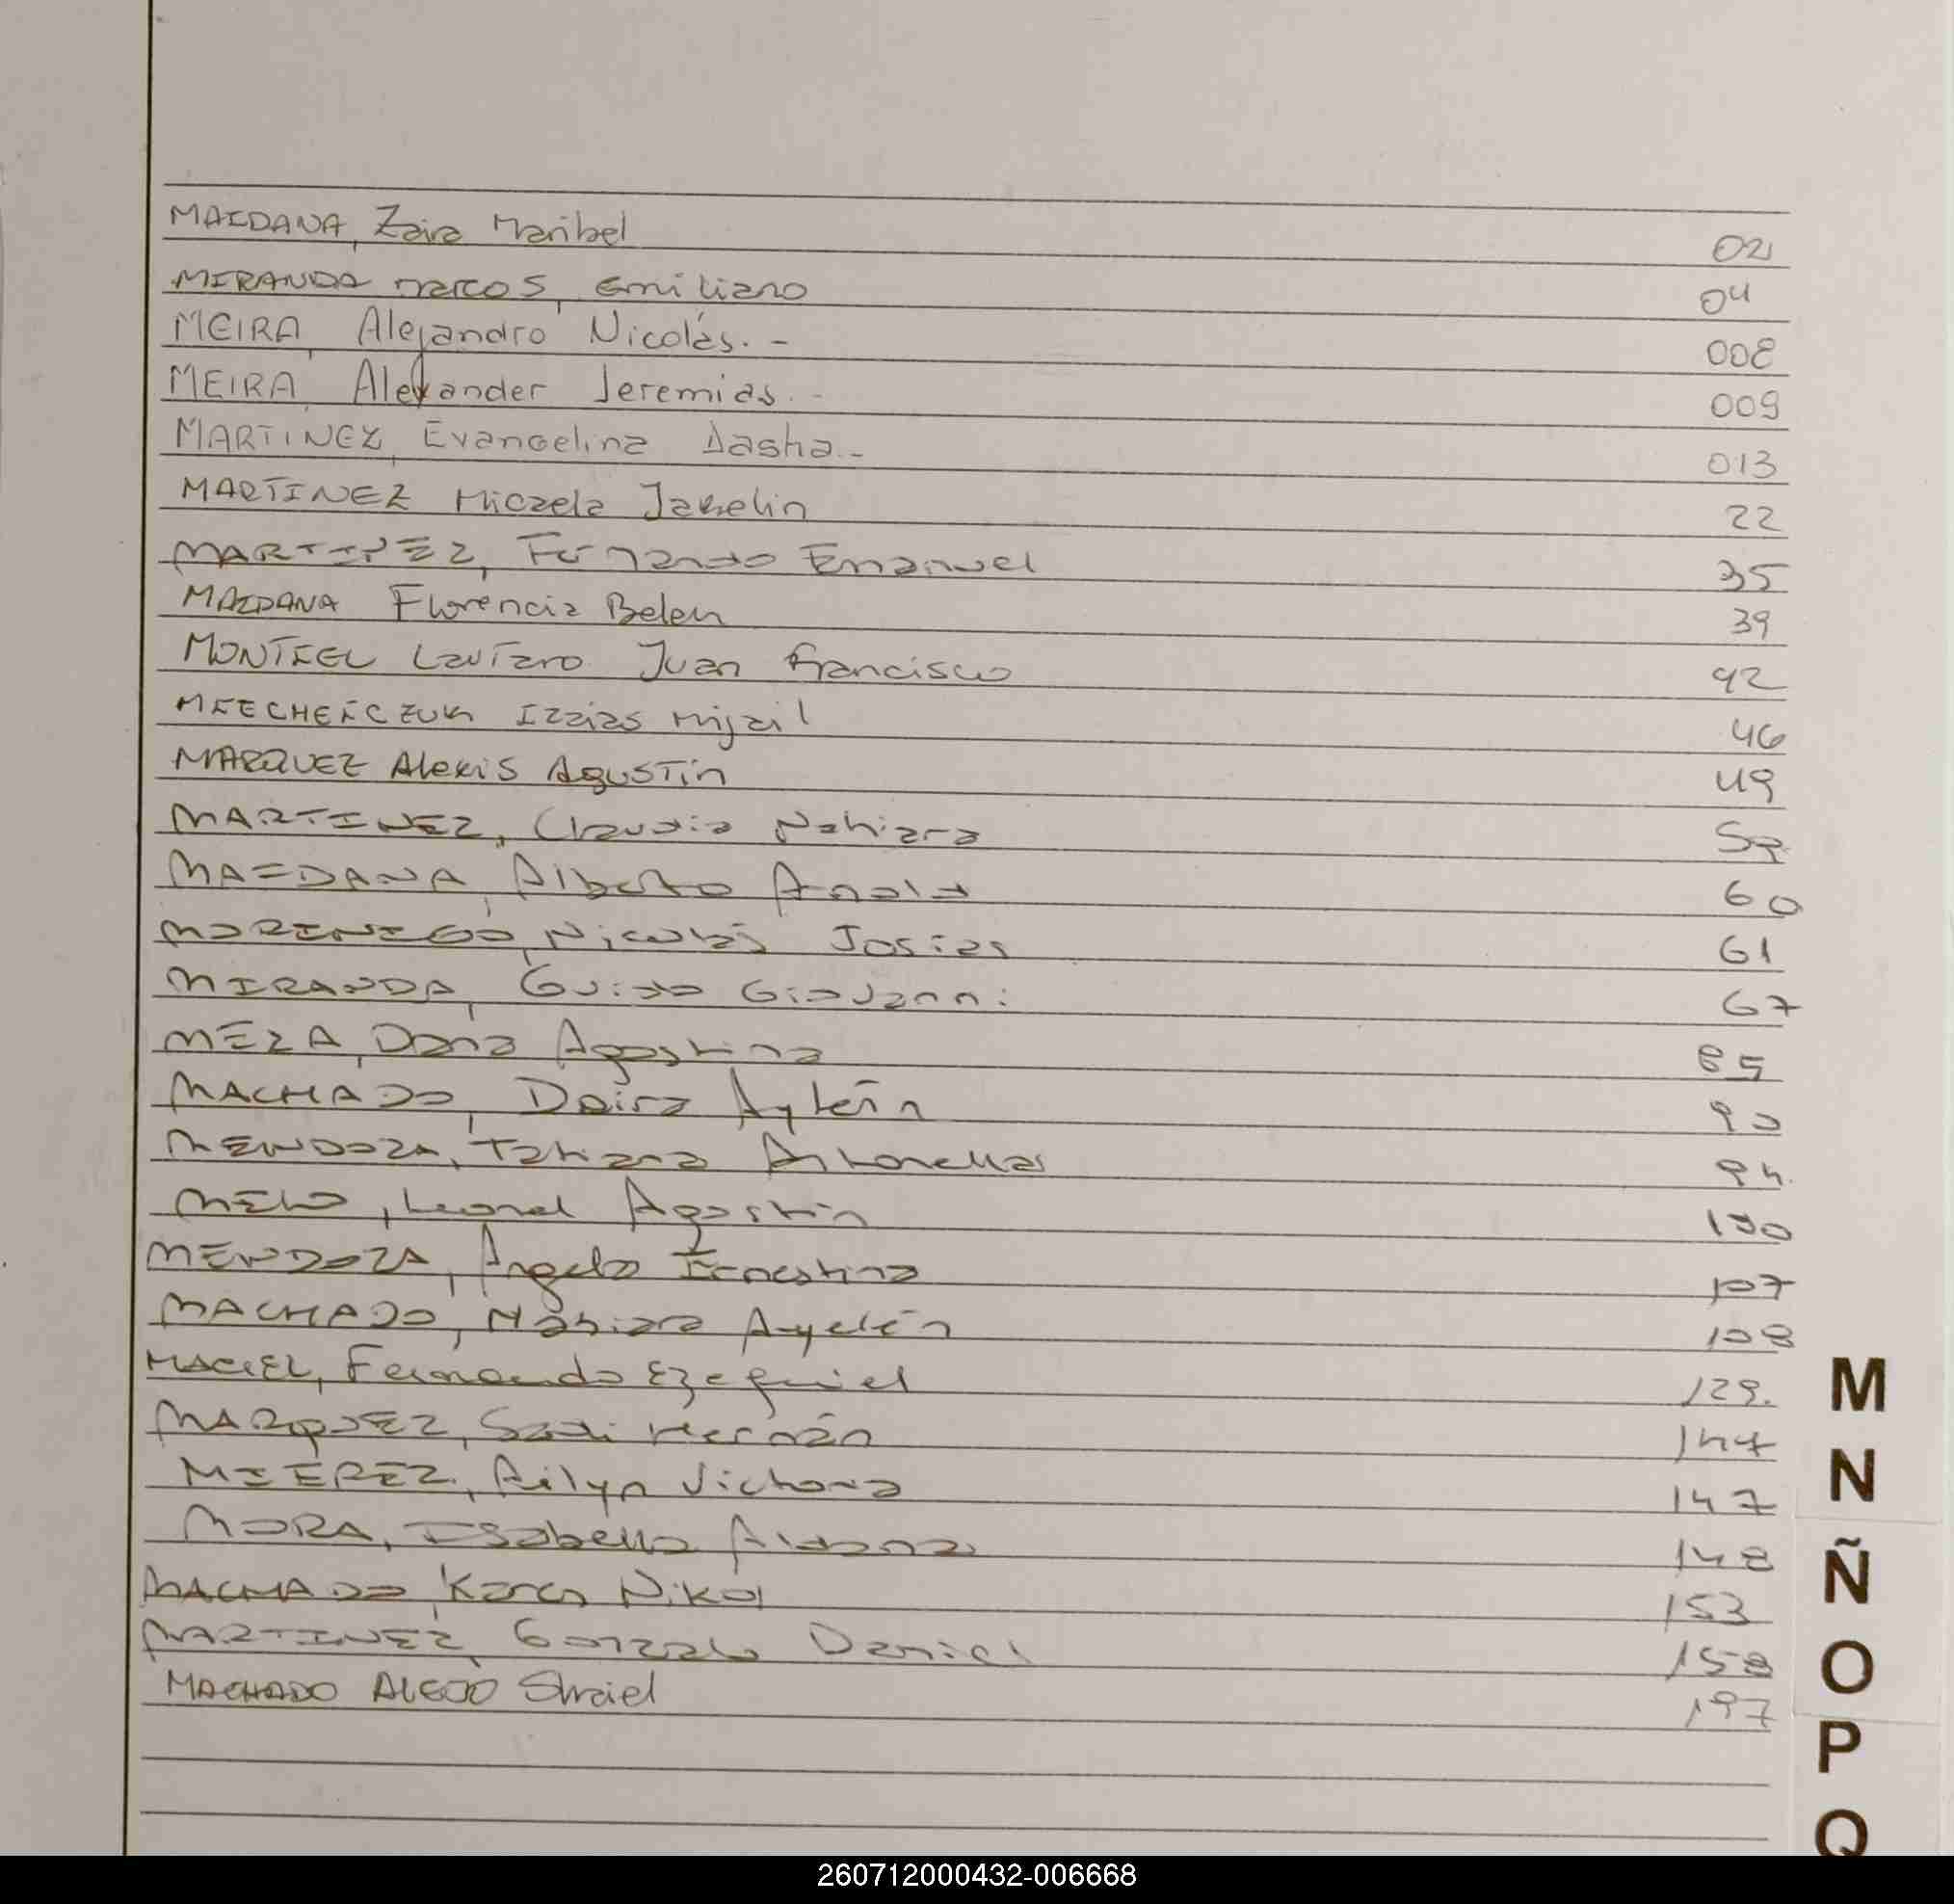 MAIDANA, Zaira Maribel 02
MIRANDA marcos, Emiliano 04
MEIRA, Alejandro Nicolás.- 008
MEIRA, Alexander Jeremias.- 009
MARTINEZ, Evangelina Dasha.- 013
MARTINEZ Micaela Jakelin 22
MARTINEZ, Fernando Emanuel 35
MAIDANA Florencia Belen 39
MONTIEL Lautaro Juan Francisco 42
Mijail 46
MARQUEZ Alexis Agustin 49
MARTINEZ, Claudia Nahiara
MAIDANA, Alberto 60
MORINIGO, Nicolás Josias 61
MIRANDA, Guido Giovanni 67
MEZA, Dana Agostina 85
MACHADO, Daira Aylén 90
MENDOZA, Tatiana 94.
MELO, Leonel Agustin 100
MENDOZA, Angela Ernestina 107
MACHADO, Nahiara Ayelén 108
MACIEL, Fernando Ezequiel 129.
MARQUEZ, Hernán
MIEREZ, Ailyn Victoria 147
MORA, Isabella Aldana 148
MACHADO, Karen Nikol 153
MARTINEZ, Gonzalo Daniel 158
MACHADO ALEJO 197
M
N
Ñ
O
P
Q
260712000432-006668